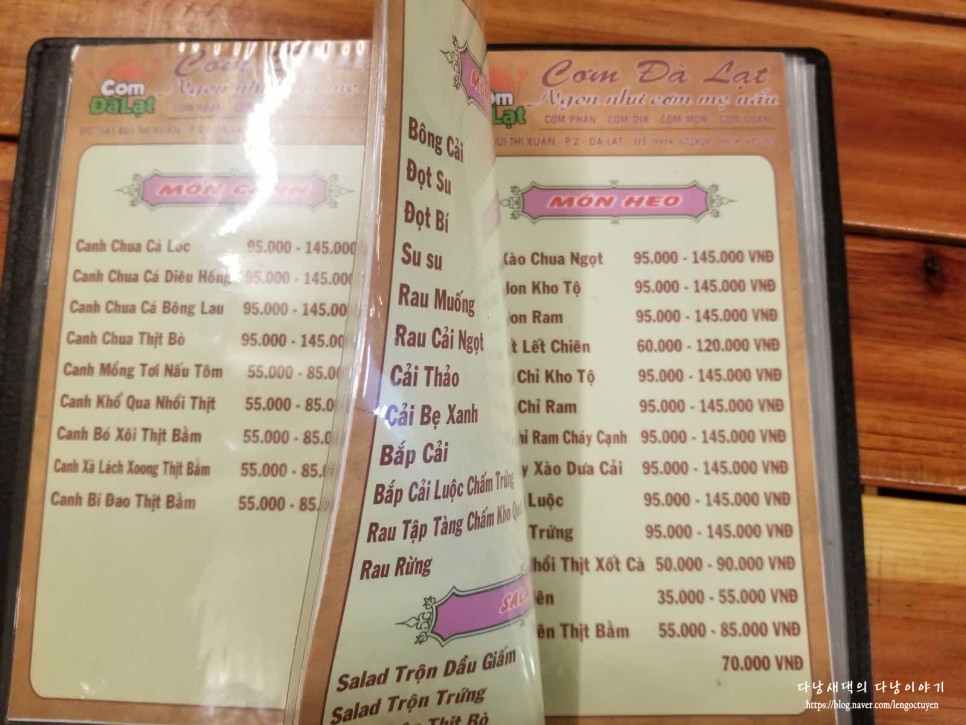 Cơm
ĐàLạt
Cơm Đà Lạt
Ngon như cơm mẹ nấu
MÓN CANH
Canh Chua Cá Lóc 95.000 - 145.000
Canh Chua Cá Diêu Hồng 95.000 - 145.00
Canh Chua Cá Bông Lau 95.000 - 145.00
Canh Chua Thịt Bò 95.000 - 145.00
Canh Mồng Tơi Nấu Tôm 55.000 - 85.00
Canh Khổ Qua Nhồi Thịt 55.000 - 85.0
Canh Bó Xôi Thịt Bằm 55.000 - 85.0
Canh Xà Lách Xoong Thịt Bằm 55.000 - 85.
Canh Bí Đao Thịt Bằm 55.000 - 85.
Bông Cải
Đọt Su
Đọt Bí
Su su
Rau Muống
Rau Cải Ngọt
Cải Thảo
Cải Bẹ Xanh
Bắp Cải
Bắp Cải Luộc Chấm Trứng
Rau Tập Tàng Chấm Kho
Rau Rừng
Salad Trộn Dầu Giấm
Salad Trộn Trứng
Thịt Bò
Cơm Đà Lạt
Ngon như cơm mẹ nấu
CƠM PHẦN CƠM DĨA CƠM MÓN
BÙI THỊ XUÂN - P.2 - ĐÀ LẠT
MÓN HEO
Xào Chua Ngọt 95.000 - 145.000 VNĐ
on Kho Tộ 95.000 - 145.000 VNĐ
on Ram 95.000 - 145.000 VNĐ
t Lết Chiên 60.000 - 120.000 VNĐ
Chỉ Kho Tộ 95.000 - 145.000 VNĐ
Chỉ Ram 95.000 - 145.000 VNĐ
hỉ Ram Cháy Cạnh 95.000 - 145.000 VNĐ
y Xào Dưa Cải 95.000 - 145.000 VNĐ
Luộc 95.000 - 145.000 VNĐ
Trứng 95.000 - 145.000 VNĐ
hồi Thịt Xốt Cà 50.000 - 90.000 VNĐ
ên 35.000 - 55.000 VNĐ
ên Thịt Bằm 55.000 - 85.000 VNĐ
70.000 VNĐ
다낭새댁의 다낭이야기
https://blog.naver.com/lengoctuyen